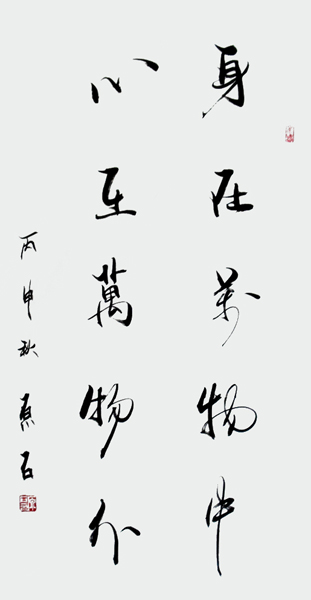 身在萬物中
心在萬物外
丙申秋 石